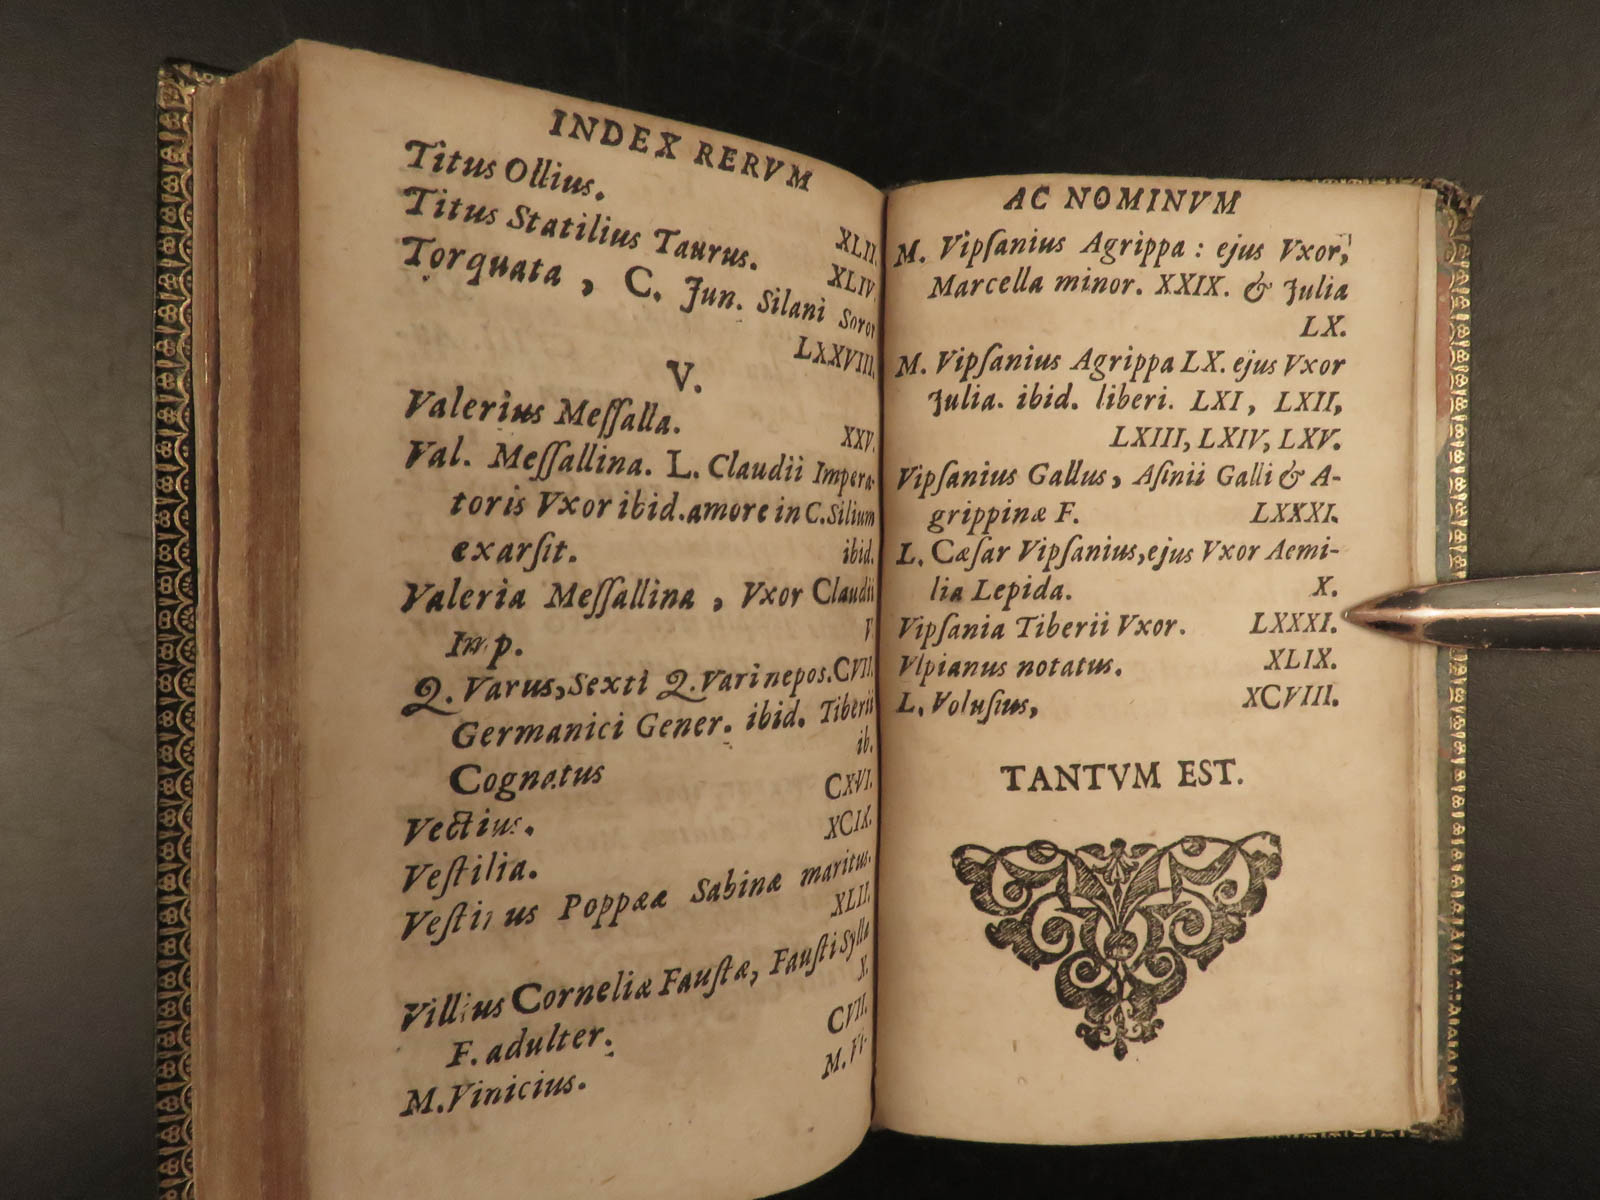 INDEX RERVM
Titus Ollius. XLII.
Titus Statilius Taurus. XLIV.
Torquata, C. Jun. Silani Soror
LXXVIII.
V.
Valerius Meſſalla. XXV.
Val. Meſſallina. L. Claudii Impera-
toris Vxor ibid. amore in C. Silium
exarſit. ibid.
Valeria Meſſallina, Vxor Claudii
Imp. V
Q. Varus, Sexti Q. Vari nepos. CVII.
Germanici Gener. ibid. Tiberii
Cognatus ib.
Vectius. CXVI.
Veſtilia. XCIX.
Veſtinus Poppææ Sabinæ maritus.
XLII.
Villius Corneliæ Fauſtæ, Fauſti Syllæ
F. adulter. X.
M. Vinicius. CVII.
M. Vi-
AC NOMINVM
M. Vipſanius Agrippa : ejus Vxor,
Marcella minor. XXIX. & Julia
LX.
M. Vipſanius Agrippa LX. ejus Vxor
Julia. ibid. liberi. LXI, LXII,
LXIII, LXIV, LXV.
Vipſanius Gallus, Aſinii Galli & A-
grippinæ F. LXXXI.
L. Cæſar Vipſanius, ejus Vxor Aemi-
lia Lepida. X.
Vipſania Tiberii Vxor. LXXXI.
Vlpianus notatus. XLIX.
L. Voluſius, XCVIII.
TANTVM EST.